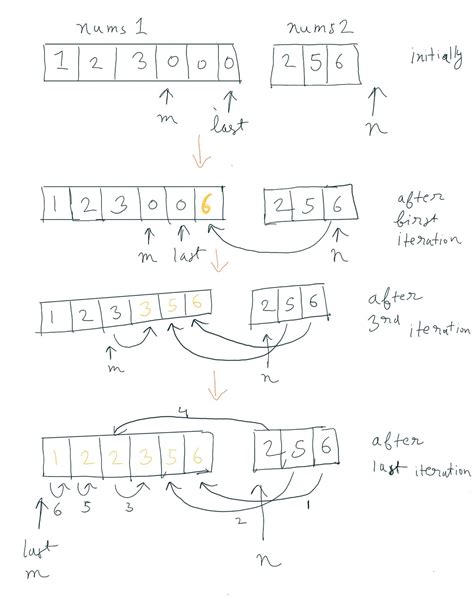 nums1 nums2
1 2 3 0 0 0 2 5 6 initially
m last n
1 2 3 0 0 6 2 5 6 after
first
iteration
m last n
1 2 3 3 5 6 2 5 6 after
3rd iteration
m n
4
1 2 2 3 5 6 2 5 6 after
last iteration
6 5 3 2 1
last
m n